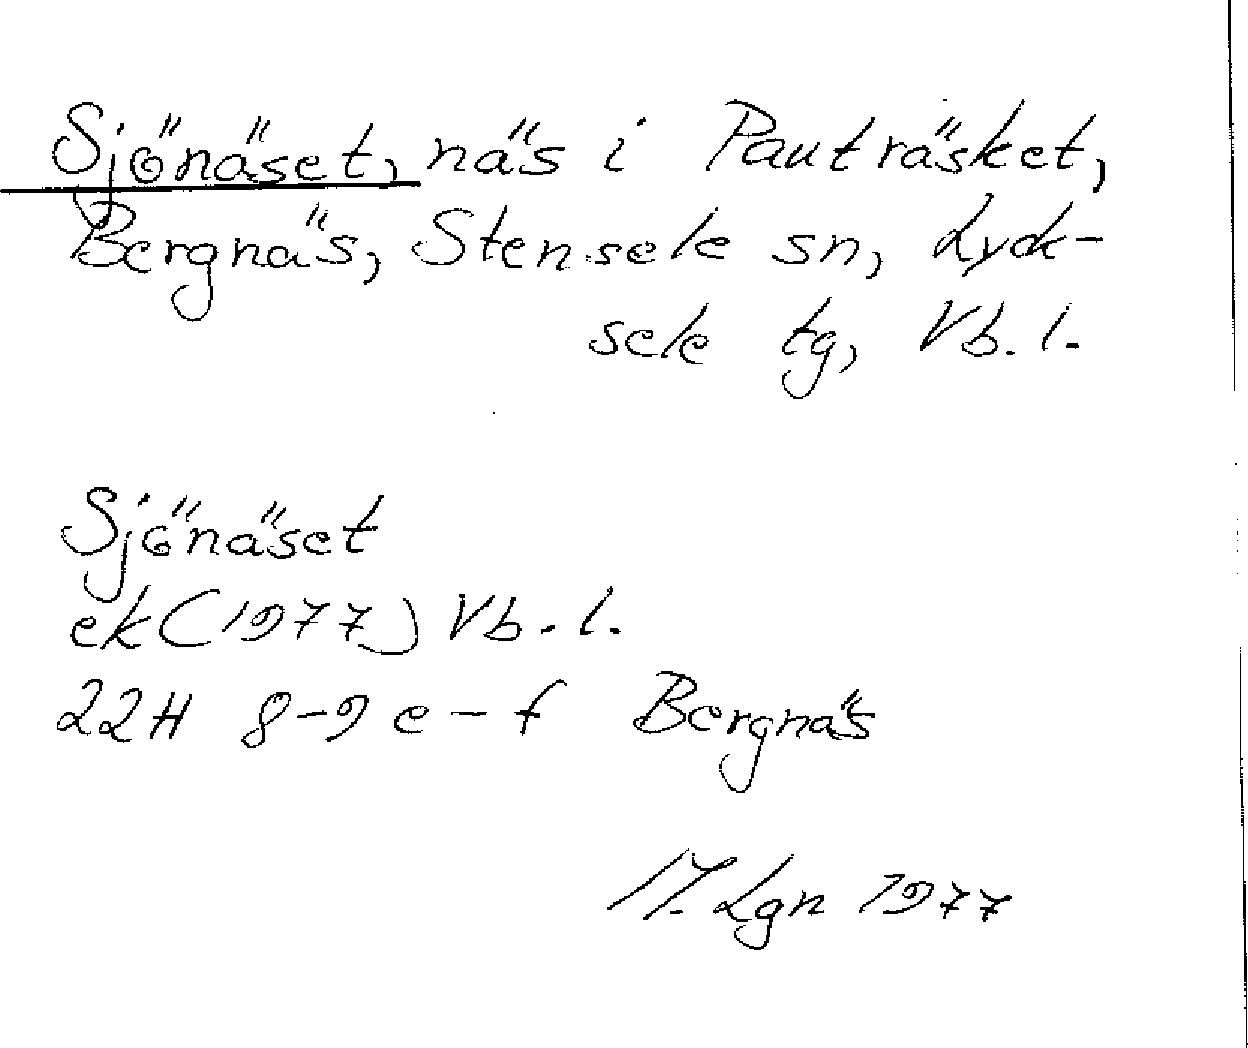 Sjönäset, näs i Pauträsket,
Bergnäs, Stensele sn, Lyck-
sele tg, Vb. l.
Sjönäset
ek (1977) Vb. l.
22H 8-9 e-f Bergnäs
Lgn 1977